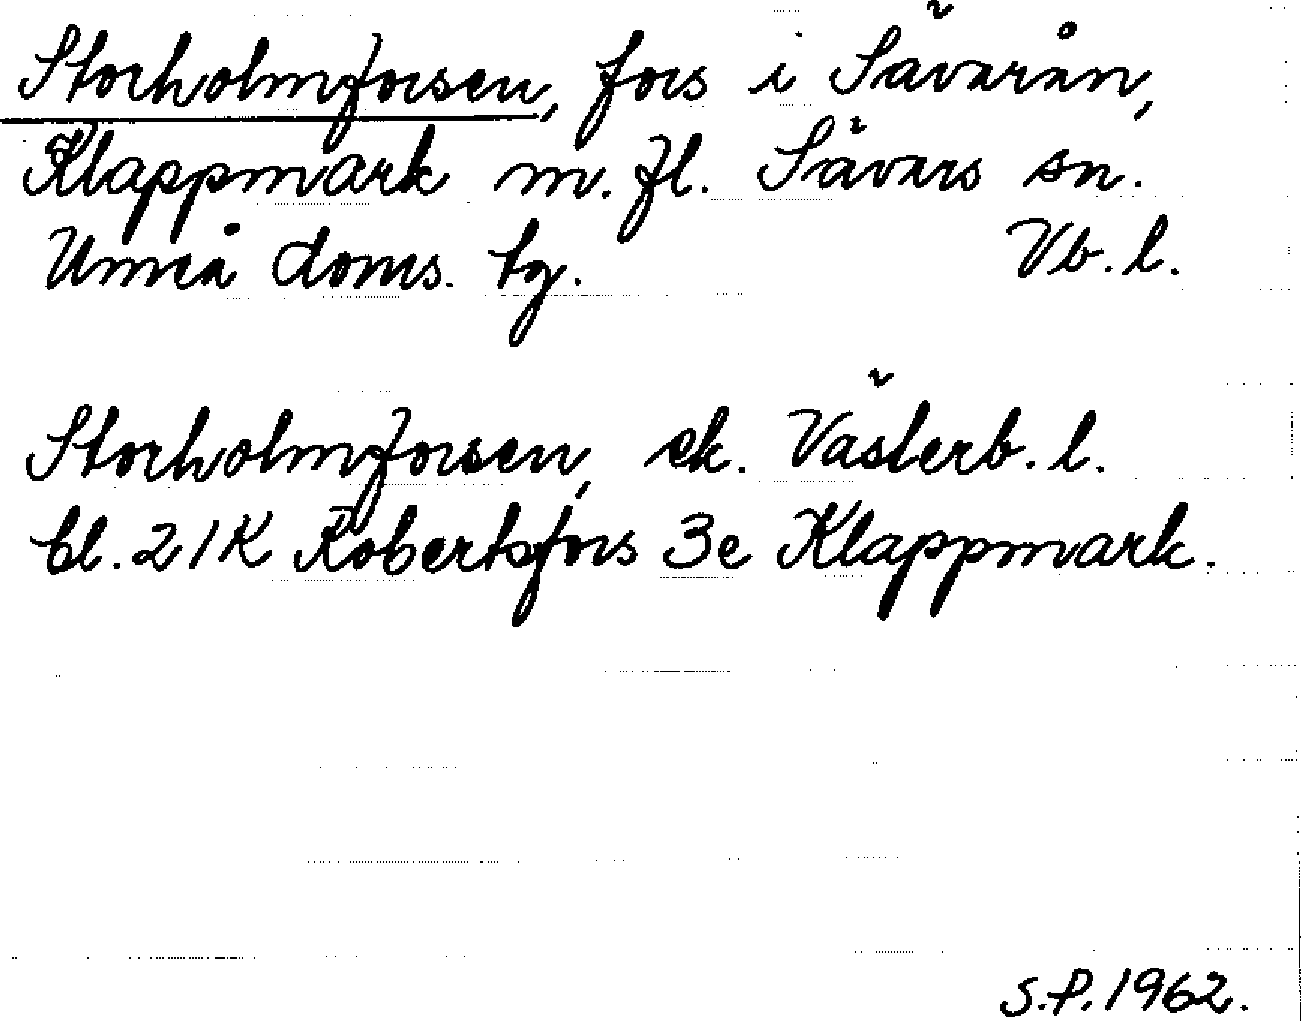 Storholmforsen, fors i Sävarån,
Klappmark m.fl. Sävars sn.
Umeå doms. tg. Vb.l.
Storholmforsen, ek. Västerb.l.
bl. 21K Robertsfors 3e Klappmark.
S.P. 1962.